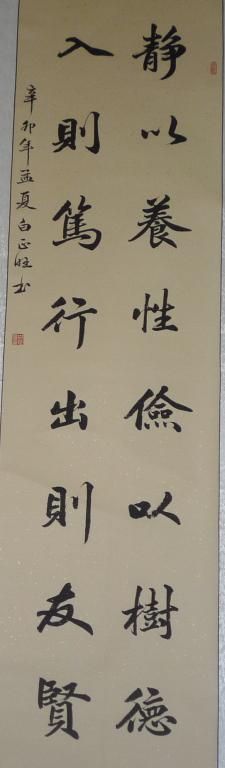 靜以養性儉以樹德
入則篤行出則友賢
辛卯年孟夏白正旺書